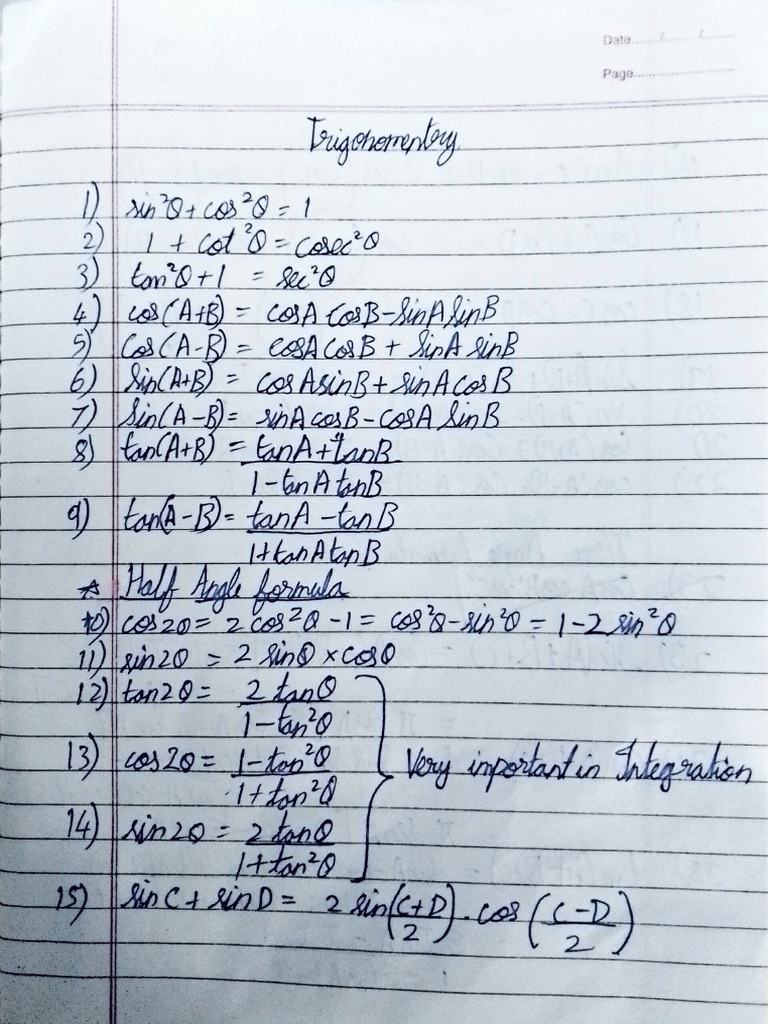 Date....../....../......
Page........................
Trigonomentry
1) sin²θ + cos²θ = 1
2) 1 + cot²θ = cosec²θ
3) tan²θ + 1 = sec²θ
4) cos(A+B) = cosA cosB - sinA sinB
5) cos(A-B) = cosA cosB + sinA sinB
6) sin(A+B) = cosA sinB + sinA cosB
7) sin(A-B) = sinA cosB - cosA sinB
8) tan(A+B) = tanA + tanB
1 - tanA tanB
9) tan(A-B) = tanA - tanB
1 + tanA tanB
* Half Angle formula
10) cos2θ = 2cos²θ - 1 = cos²θ - sin²θ = 1 - 2 sin²θ
11) sin2θ = 2 sinθ × cosθ
12) tan2θ = 2 tanθ
1 - tan²θ
13) cos2θ = 1 - tan²θ
1 + tan²θ
Very important in Integration
14) sin2θ = 2 tanθ
1 + tan²θ
15) sinC + sinD = 2 sin(C+D/2) . cos(C-D/2)